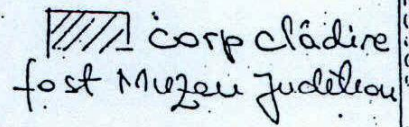 corp clădire
fost Muzeu Județean